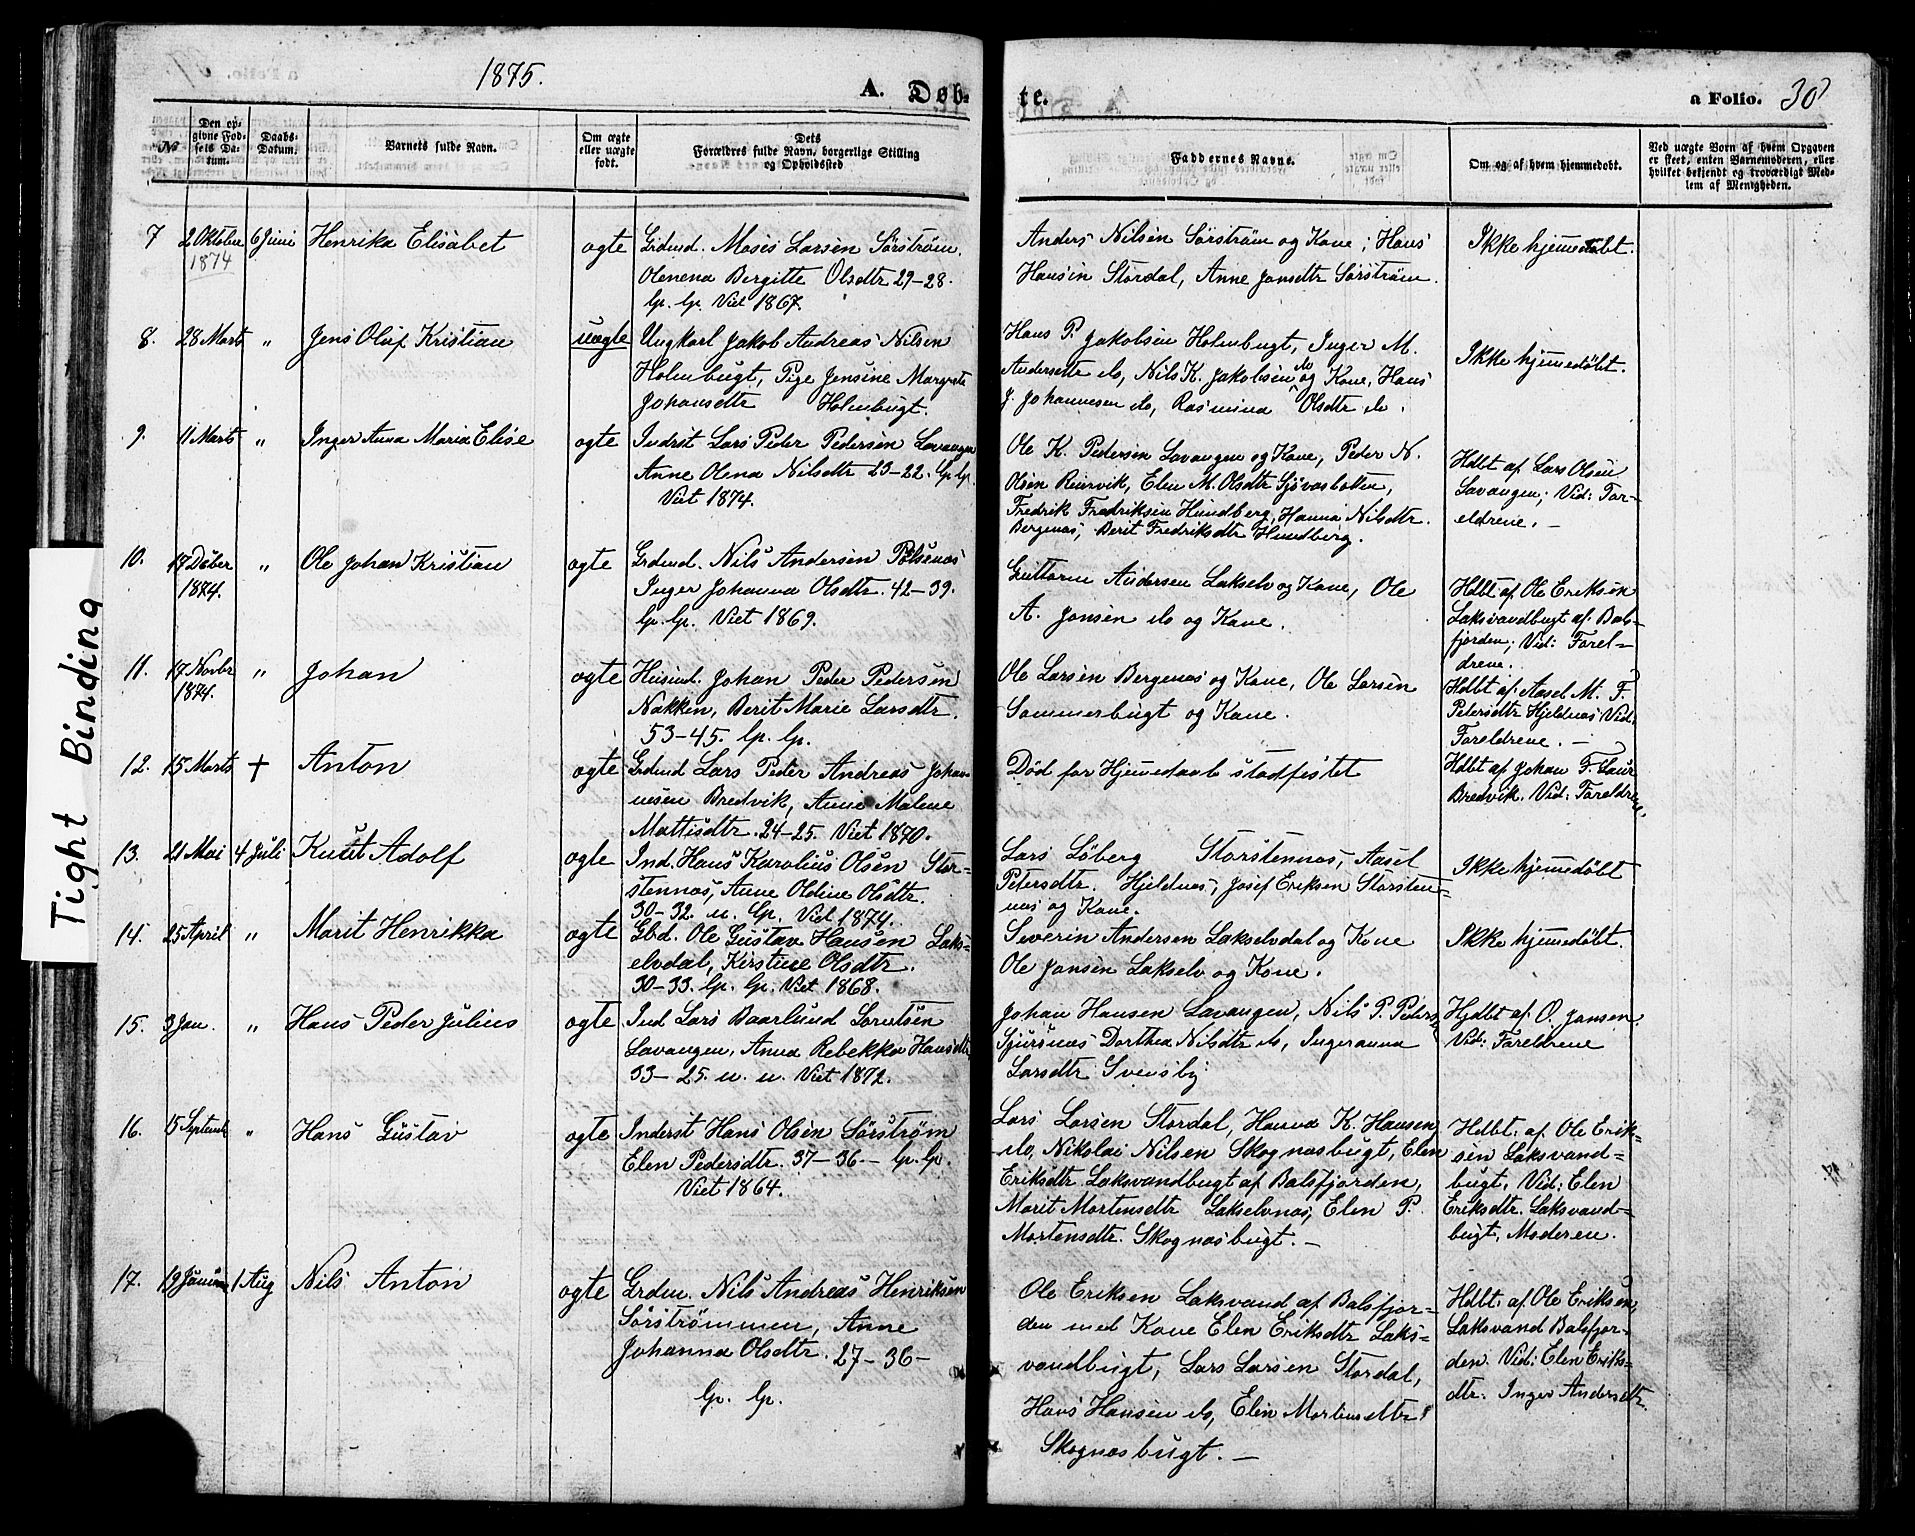 1875.
A. Døb-
te.
a Folio. 30
№
Den op-
givne Fød-
sels Da-
tum.
Daabs-
Datum.
Barnets fulde Navn.
Om ægte
eller uægte
født.
Dets
Forældres fulde Navn, borgerlige Stilling
og Opholdssted
Faddernes Navne.
Om og af hvem hjemmedøbt.
Ved uægte Børn af hvem Opgaven
er skeet, enten Barnemoderen, eller
hvilket bekjendt og troværdigt Med-
lem af Menigheden.
Tight Binding
7 2 Oktober 6 Juni Henrika Elisabet ægte Grdmd. Moses Larsen Sørstrøm.
1874
Olenena Bergitte Olsdtr 29-28.
lp. lp. Viet 1867.
Anders Nilsen Sørstrøm og Kone; Hans
Hansen Stordal, Anne Jonsdtr Sørstrøm.
Ikke hjemmedøbt.
8. 28 Marts " Jens Oluf Kristian uægte Ungkarl Jakob Andreas Nilsen
Holmbugt, Pige Jensine Margrete
Johansdtr Holmbugt.
Hans P. Jakobsen Holmbugt, Inger M.
Andersdtr do, Nils K. Jakobsen do og Kone, Hans
J. Johannesen do, Rasmina Olsdtr do.
Ikke hjemmedøbt.
9. 11 Marts " Inger Anna Maria Elise ægte Indrst Lars Peder Pedersen Lavangen
Anne Olena Nilsdtr 23-22. lp. lp.
Viet 1874.
Ole K. Pedersen Lavangen og Kone, Peder N.
Olsen Reinvik, Elen M. Olsdtr Sjøvasbotten,
Fredrik Fredriksen Hundberg, Hanna Nilsdtr.
Bergenæs, Berit Fredriksdtr Hundberg.
Hdbt af Lars Olsen
Lavangen; Vid: For-
eldrene. -
10. 17 Dcber " Ole Johan Kristian ægte Grdmd. Nils Andersen Pølsenæs
1874.
Inger Johanna Olsdtr. 42-39.
lp. lp. Viet 1869.
Guttorm Andersen Lakselv og Kone, Ole
A. Jonsen do og Kone.
Hdbt. af Ole Eriksen
Laksvandbugt af Bals-
fjorden; Vid: Forel-
drene.
11. 17 Novbr " Johan ægte Husmd. Johan Peder Pedersen
1874.
Nakken, Berit Marie Larsdtr.
53-45. lp. lp.
Ole Larsen Bergenæs og Kone, Ole Larsen
Sommerbugt og Kone.
Hdbt. af Aasel M. F.
Petersdtr Hjeldnæs Vid:
Foreldrene. -
12. 15 Marts + Anton ægte Grdmd Lars Peder Andreas Johan-
nesen Bredvik, Anne Malene
Mattisdtr. 24-25. Viet 1870.
Død før Hjemmedaab stadfestet
Hdbt af Johan F. Laur
Bredvik. Vid: Foreldrene.
13. 21 Mai 4 Juli Knut Adolf ægte Ind. Hans Karolius Olsen Stor-
stennæs, Anne Oldine Olsdtr.
30-32. u. lp. Viet 1874.
Lars Løberg Storstennæs, Aasel
Petersdtr. Hjeldnæs, Josef Eriksen Storsten-
næs og Kone.
Ikke hjemmedøbt
14. 25 April " Marit Henrikka ægte Gbd. Ole Gustav Hansen Laks-
elvdal, Kirstine Olsdtr.
30-33. lp. lp. Viet 1868.
Severin Andersen Lakselvdal og Kone
Ole Jonsen Lakselv og Kone.
Ikke hjemmedøbt.
15. 3 Jan. " Hans Peder Julius ægte Ind Lars Baarlund Lorntsen
Lavangen, Anna Rebekka Hansdtr
33-25. u. u. Viet 1872.
Johan Hansen Lavangen, Nils P. Peders
Sjursnæs Dorthea Nilsdtr do, Ingeranna
Larsdtr Svensby
Hjdbt af O. Jansen.
Vid: Foreldrene
16. 15 Septembr " Hans Gustav ægte Inderst Hans Olsen Sørstrøm
Elen Pedersdtr. 37-36 - lp. lp.
Viet 1864.
Lars Larsen Stordal, Hanna K. Hansen
do, Nikolai Nilsen Skognæsbugt, Elen
Eriksdtr. Laksvandbugt af Balsfjorden,
Marit Mortensdtr Lakselvnæs, Elen P.
Mortensdtr. Skognæsbugt. -
Hdbt. af Ole Erik-
sen Laksvand-
bugt. Vid: Elen
Eriksdtr. Laksvand-
bugt, Moderen.
17. 19 Januar 1 Aug Nils Anton ægte Grdm. Nils Andreas Henriksen
Sørstrømmen, Anne
Johanna Olsdtr. 27-36-
lp. lp.
Ole Eriksen Laksvand af Balsfjor-
den med Kone Elen Eriksdtr Laks-
vandbugt, Lars Larsen Stordal,
Hans Hansen do, Elen Mortensdtr
Skognæsbugt. -
Hdbt. af Ole Eriksen
Laksvand Balsfjor-
den. Vid: Elen Eriks-
dtr. Inger Andersdtr.